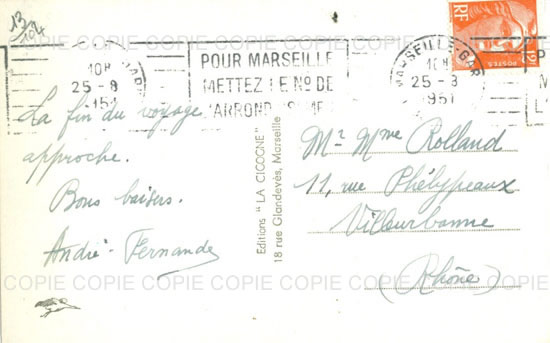 13
104
MARSEILLE-GARE
18H
25-8
1951
POUR MARSEILLE
METTEZ LE Nº DE
L'ARRONDISSEMENT
MARSEILLE-GARE
18H
25-8
1951
RF
POSTES
La fin du voyage
approche.
Bons baisers.
André-Fernande
Editions "LA CICOGNE"
18 rue Glandevès, Marseille
Mr Mme Rolland
11, rue Phélypeaux
Villeurbanne
(Rhône)
COPIE COPIE COPIE COPIE COPIE COPIE COPIE
COPIE COPIE COPIE COPIE COPIE COPIE COPIE